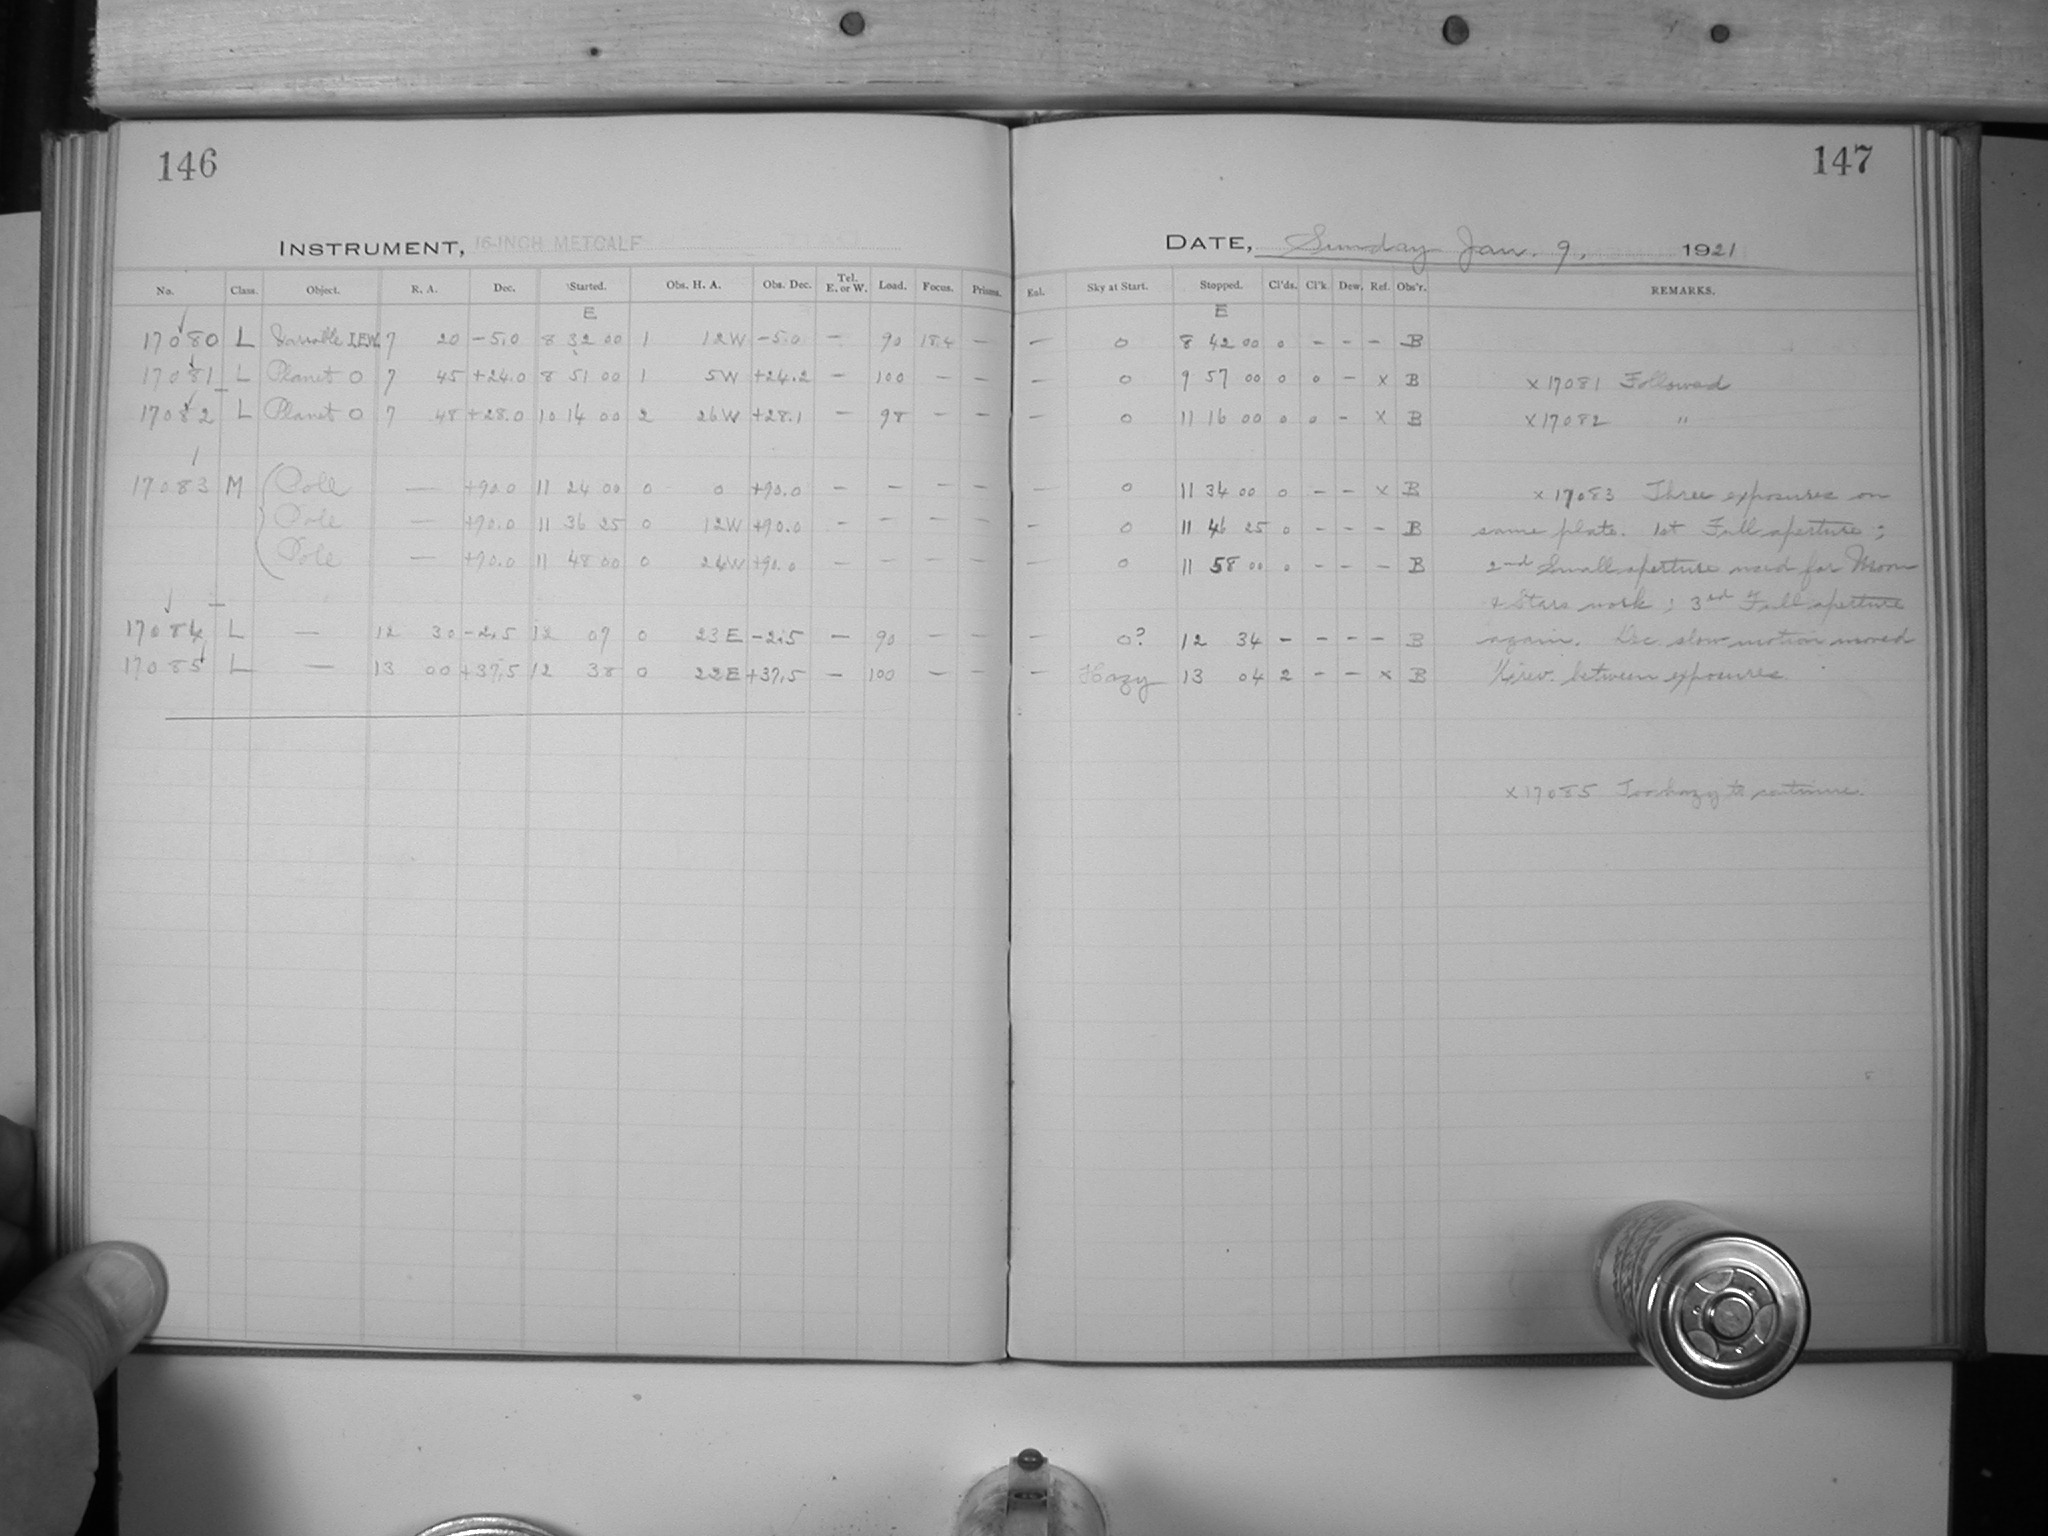 146
147
INSTRUMENT, 16-INCH METCALF
DATE, Sunday Jan. 9, 1921
No. Class. Object. R. A. Dec. Started. Obs. H. A. Obs. Dec. Tel. E. or W. Load. Focus. Prisms. Enl. Sky at Start. Stopped. Cl'ds. Cl'k. Dew. Ref. Obs'r. REMARKS.
E E
17080 L Variable 7 20 -5.0 8 32 00 1 12W -5.0 - 90 18.4 - - 0 8 42 00 0 - - - B
17081 L Planet O 7 45 +24.0 8 51 00 1 5W +24.2 - 100 - - - 0 9 57 00 0 0 - x B x17081 Followed
17082 L Planet O 7 48 +28.0 10 14 00 2 26W +28.1 - 98 - - - 0 11 16 00 0 0 - x B x17082 "
17083 M Pole - +90.0 11 24 00 0 0 +90.0 - - - - - 0 11 34 00 0 - - x B x17083 Three exposures on
Pole - +90.0 11 36 25 0 12W +90.0 - - - - - 0 11 46 25 0 - - - B same plate. 1st Full aperture;
Pole - +90.0 11 48 00 0 24W +90.0 - - - - - 0 11 58 00 0 - - - B 2nd Small aperture used for Moon
& Stars work; 3rd Full aperture
17084 L - 12 30 -2.5 12 07 0 23E -2.5 - 90 - - - 0? 12 34 - - - - B again. Dec. slow motion moved
17085 L - 13 00 +37.5 12 38 0 22E +37.5 - 100 - - - Hazy 13 04 2 - - x B rev. between exposures.
x17085 Too hazy to continue.